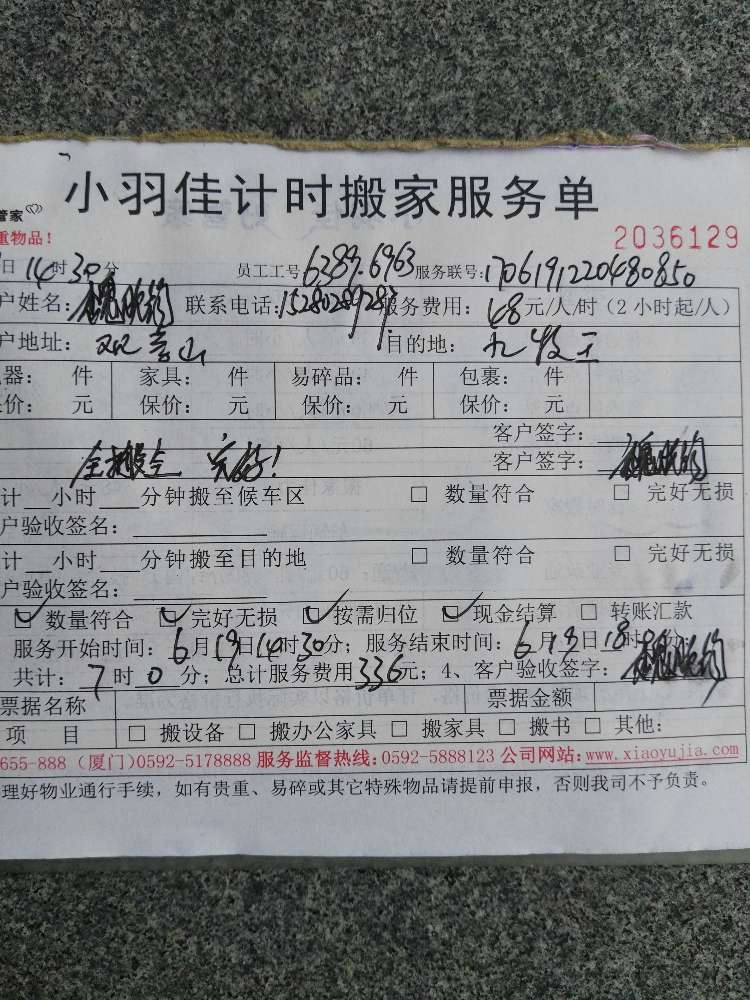 小羽佳计时搬家服务单
管家
重物品！
2036129
日14时30分 员工工号:6389.6963 服务联号:1706191220480850
户姓名: 联系电话:15280289283 服务费用: 48元/人/时(2小时起/人)
户地址: 目的地: 九牧王
器: 件 家具: 件 易碎品: 件 包裹: 件
价: 元 保价: 元 保价: 元 保价: 元
客户签字:
完好! 客户签字:
计__小时___分钟搬至候车区 □ 数量符合 □ 完好无损
户验收签名:
计__小时___分钟搬至目的地 □ 数量符合 □ 完好无损
户验收签名:
☑数量符合 ☑完好无损 ☑按需归位 ☑现金结算 □ 转账汇款
服务开始时间: 6月19日14时30分; 服务结束时间: 6月19日18时分;
共计: 7时0分; 总计服务费用336元; 4、客户验收签字:
票据名称 票据金额
项 目 □ 搬设备 □ 搬办公家具 □ 搬家具 □ 搬书 □ 其他:
655-888 (厦门)0592-5178888 服务监督热线: 0592-5888123 公司网站: www.xiaoyujia.com
理好物业通行手续，如有贵重、易碎或其它特殊物品请提前申报，否则我司不予负责。